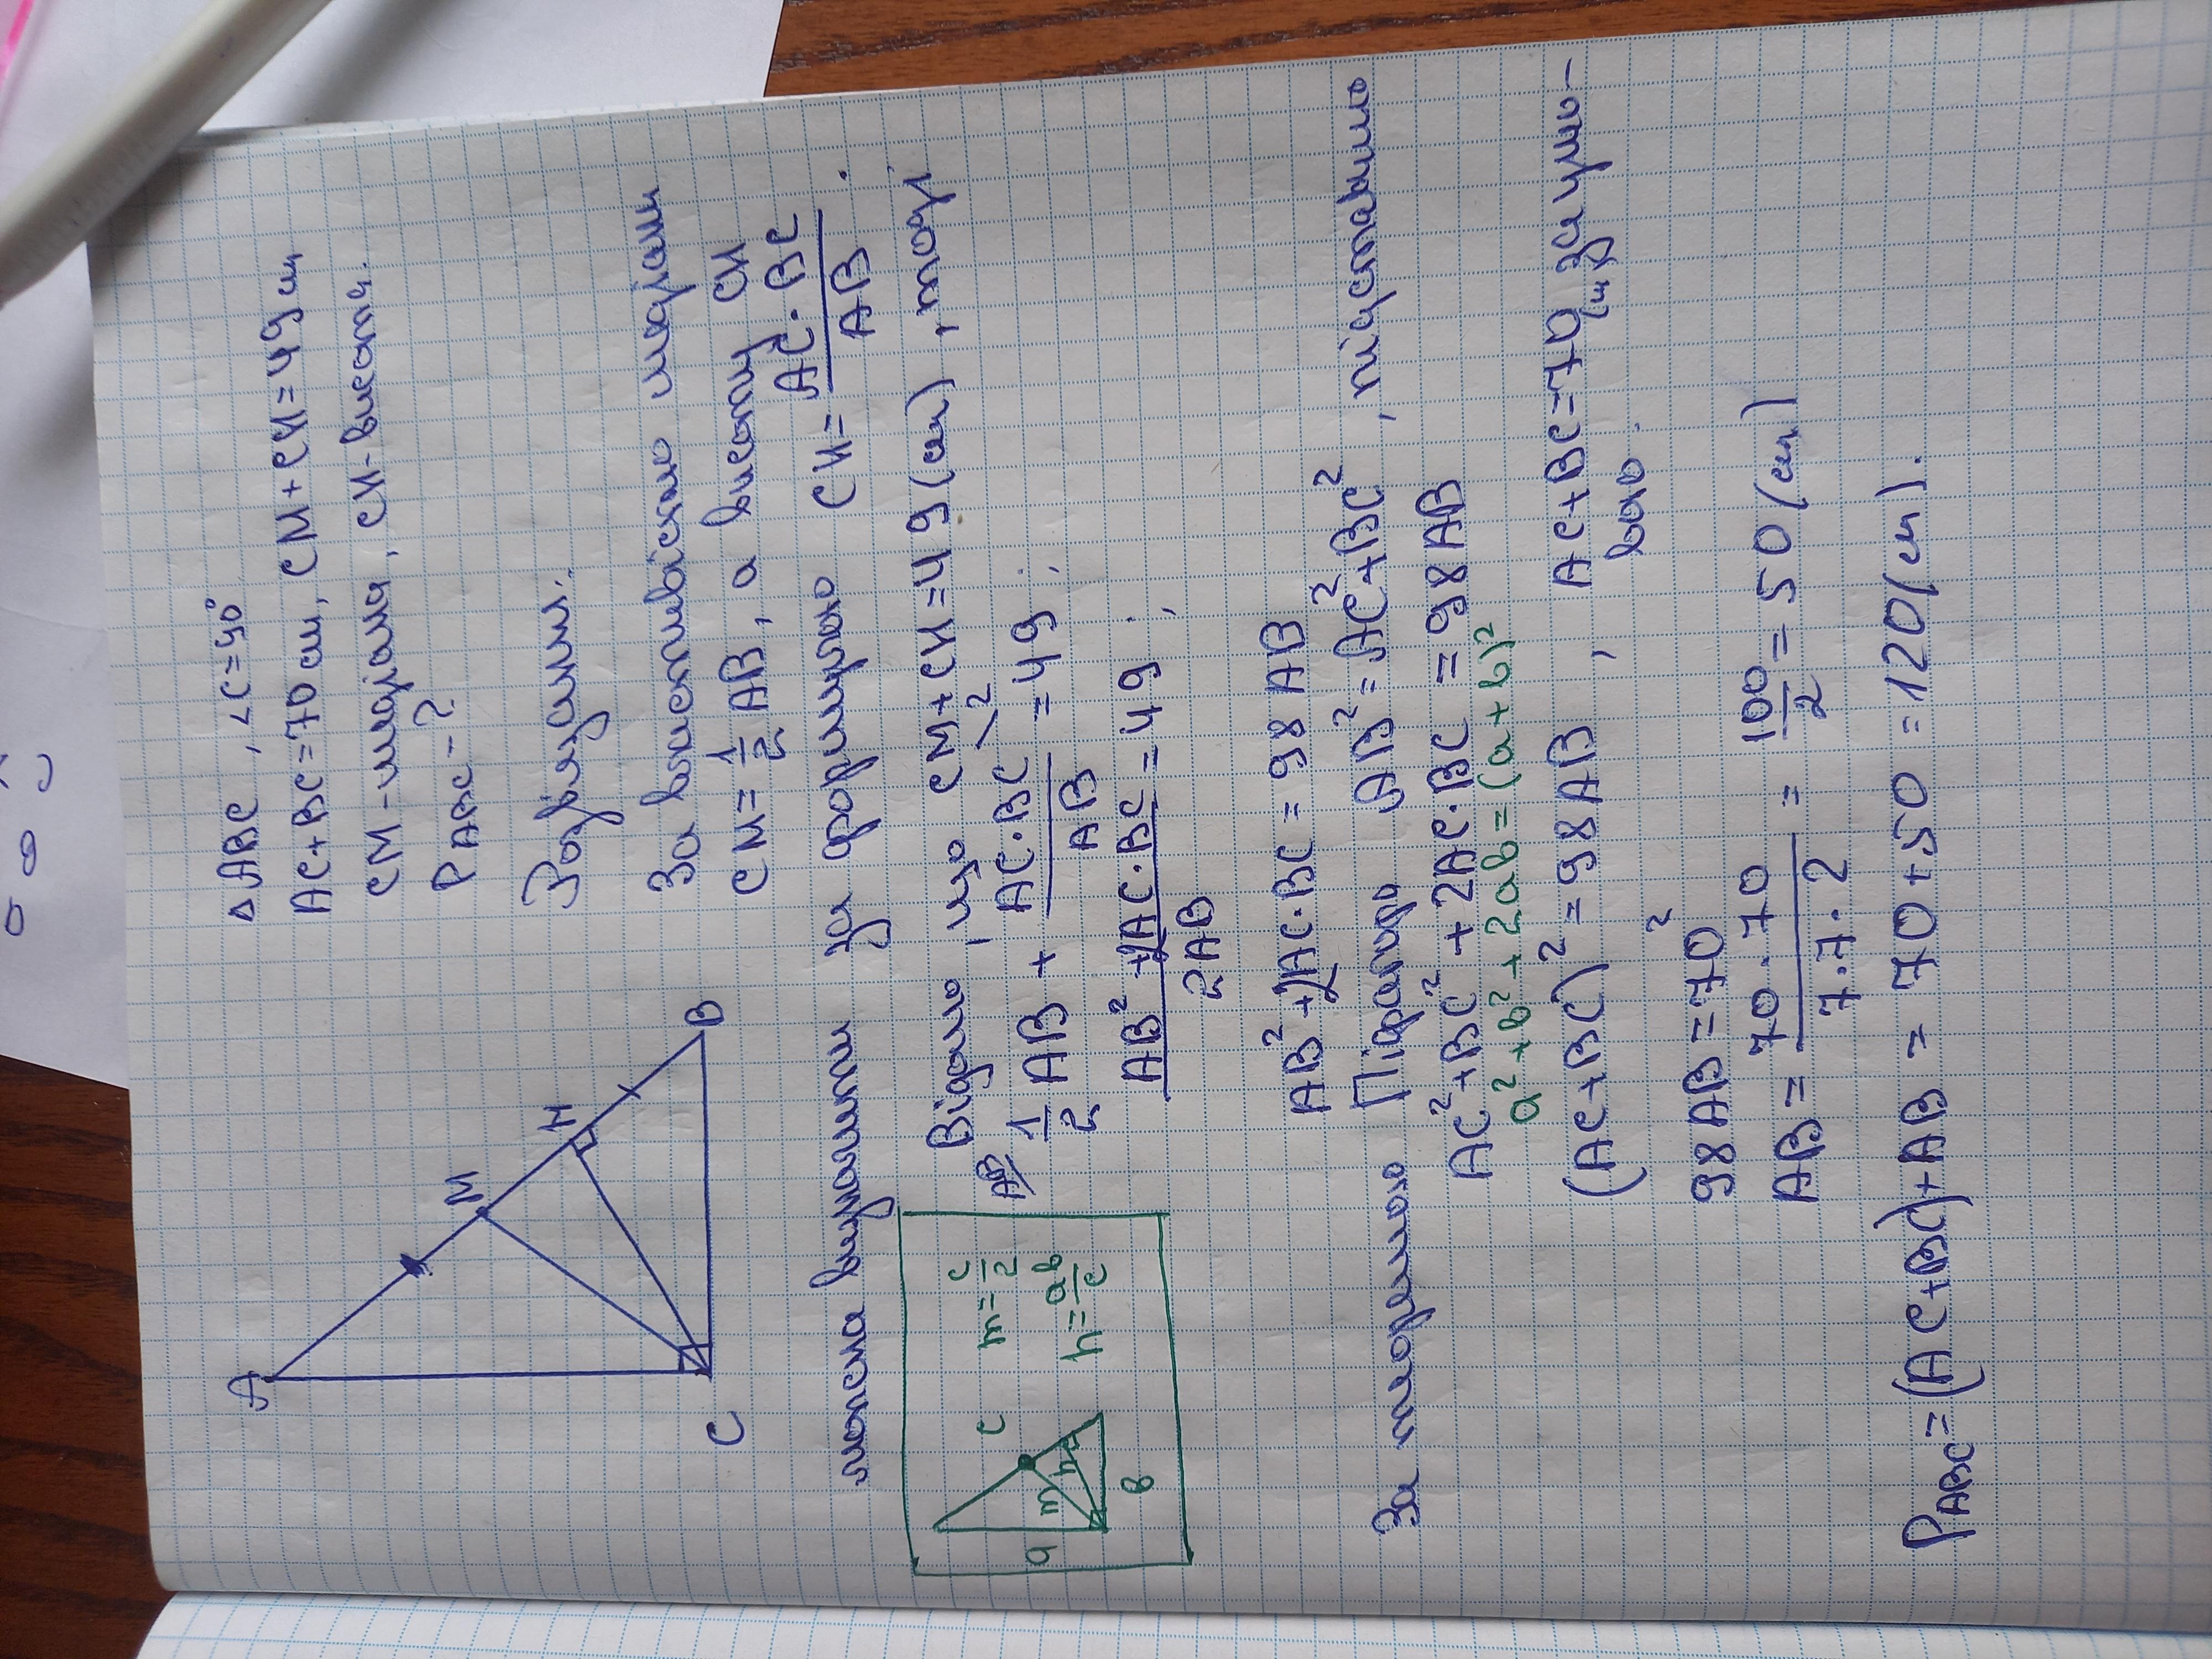 △ABC, ∠C=90°
AC+BC=70 см, CM+CH=49 см
CM-медіана, CH-висота.
P ABC-?
Розв'язання.
За властивістю медіани
CM=1/2 AB, а висоту CH
можна визначити за формулою CH= AC·BC/AB.
A
M
H
B
C
Відомо, що CM+CH=49 (см), тоді
1/2 AB + AC·BC/AB \2 =49;
AB²+2AC·BC/2AB=49;
AB²+2AC·BC=98AB
a
m
h
c
b
m=c/2
h=ab/c
За теоремою Піфагора AB²=AC²+BC², підставимо
AC²+BC²+2AC·BC=98AB
a²+b²+2ab=(a+b)²
(AC+BC)²=98AB, AC+BC=70 см за умо-
вою.
98AB=70²
AB=70·70/7·7·2=100/2=50(см)
PABC=(AC+BC)+AB=70+50=120(см).